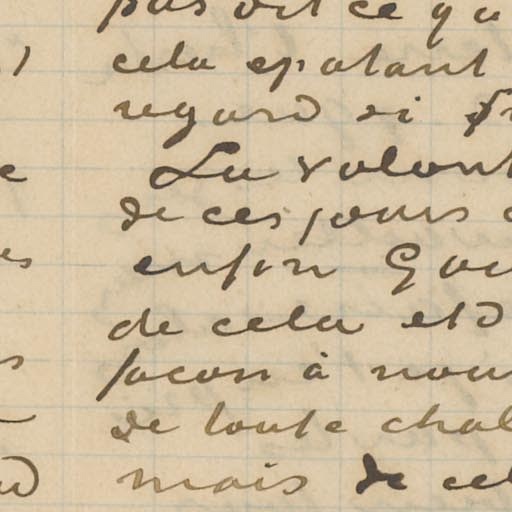 pas dit ce qu
cela epatant
regard si
La volont
de ces jours
enfin Gau
de cela et
facon à nou
de toute chal
mais de cel